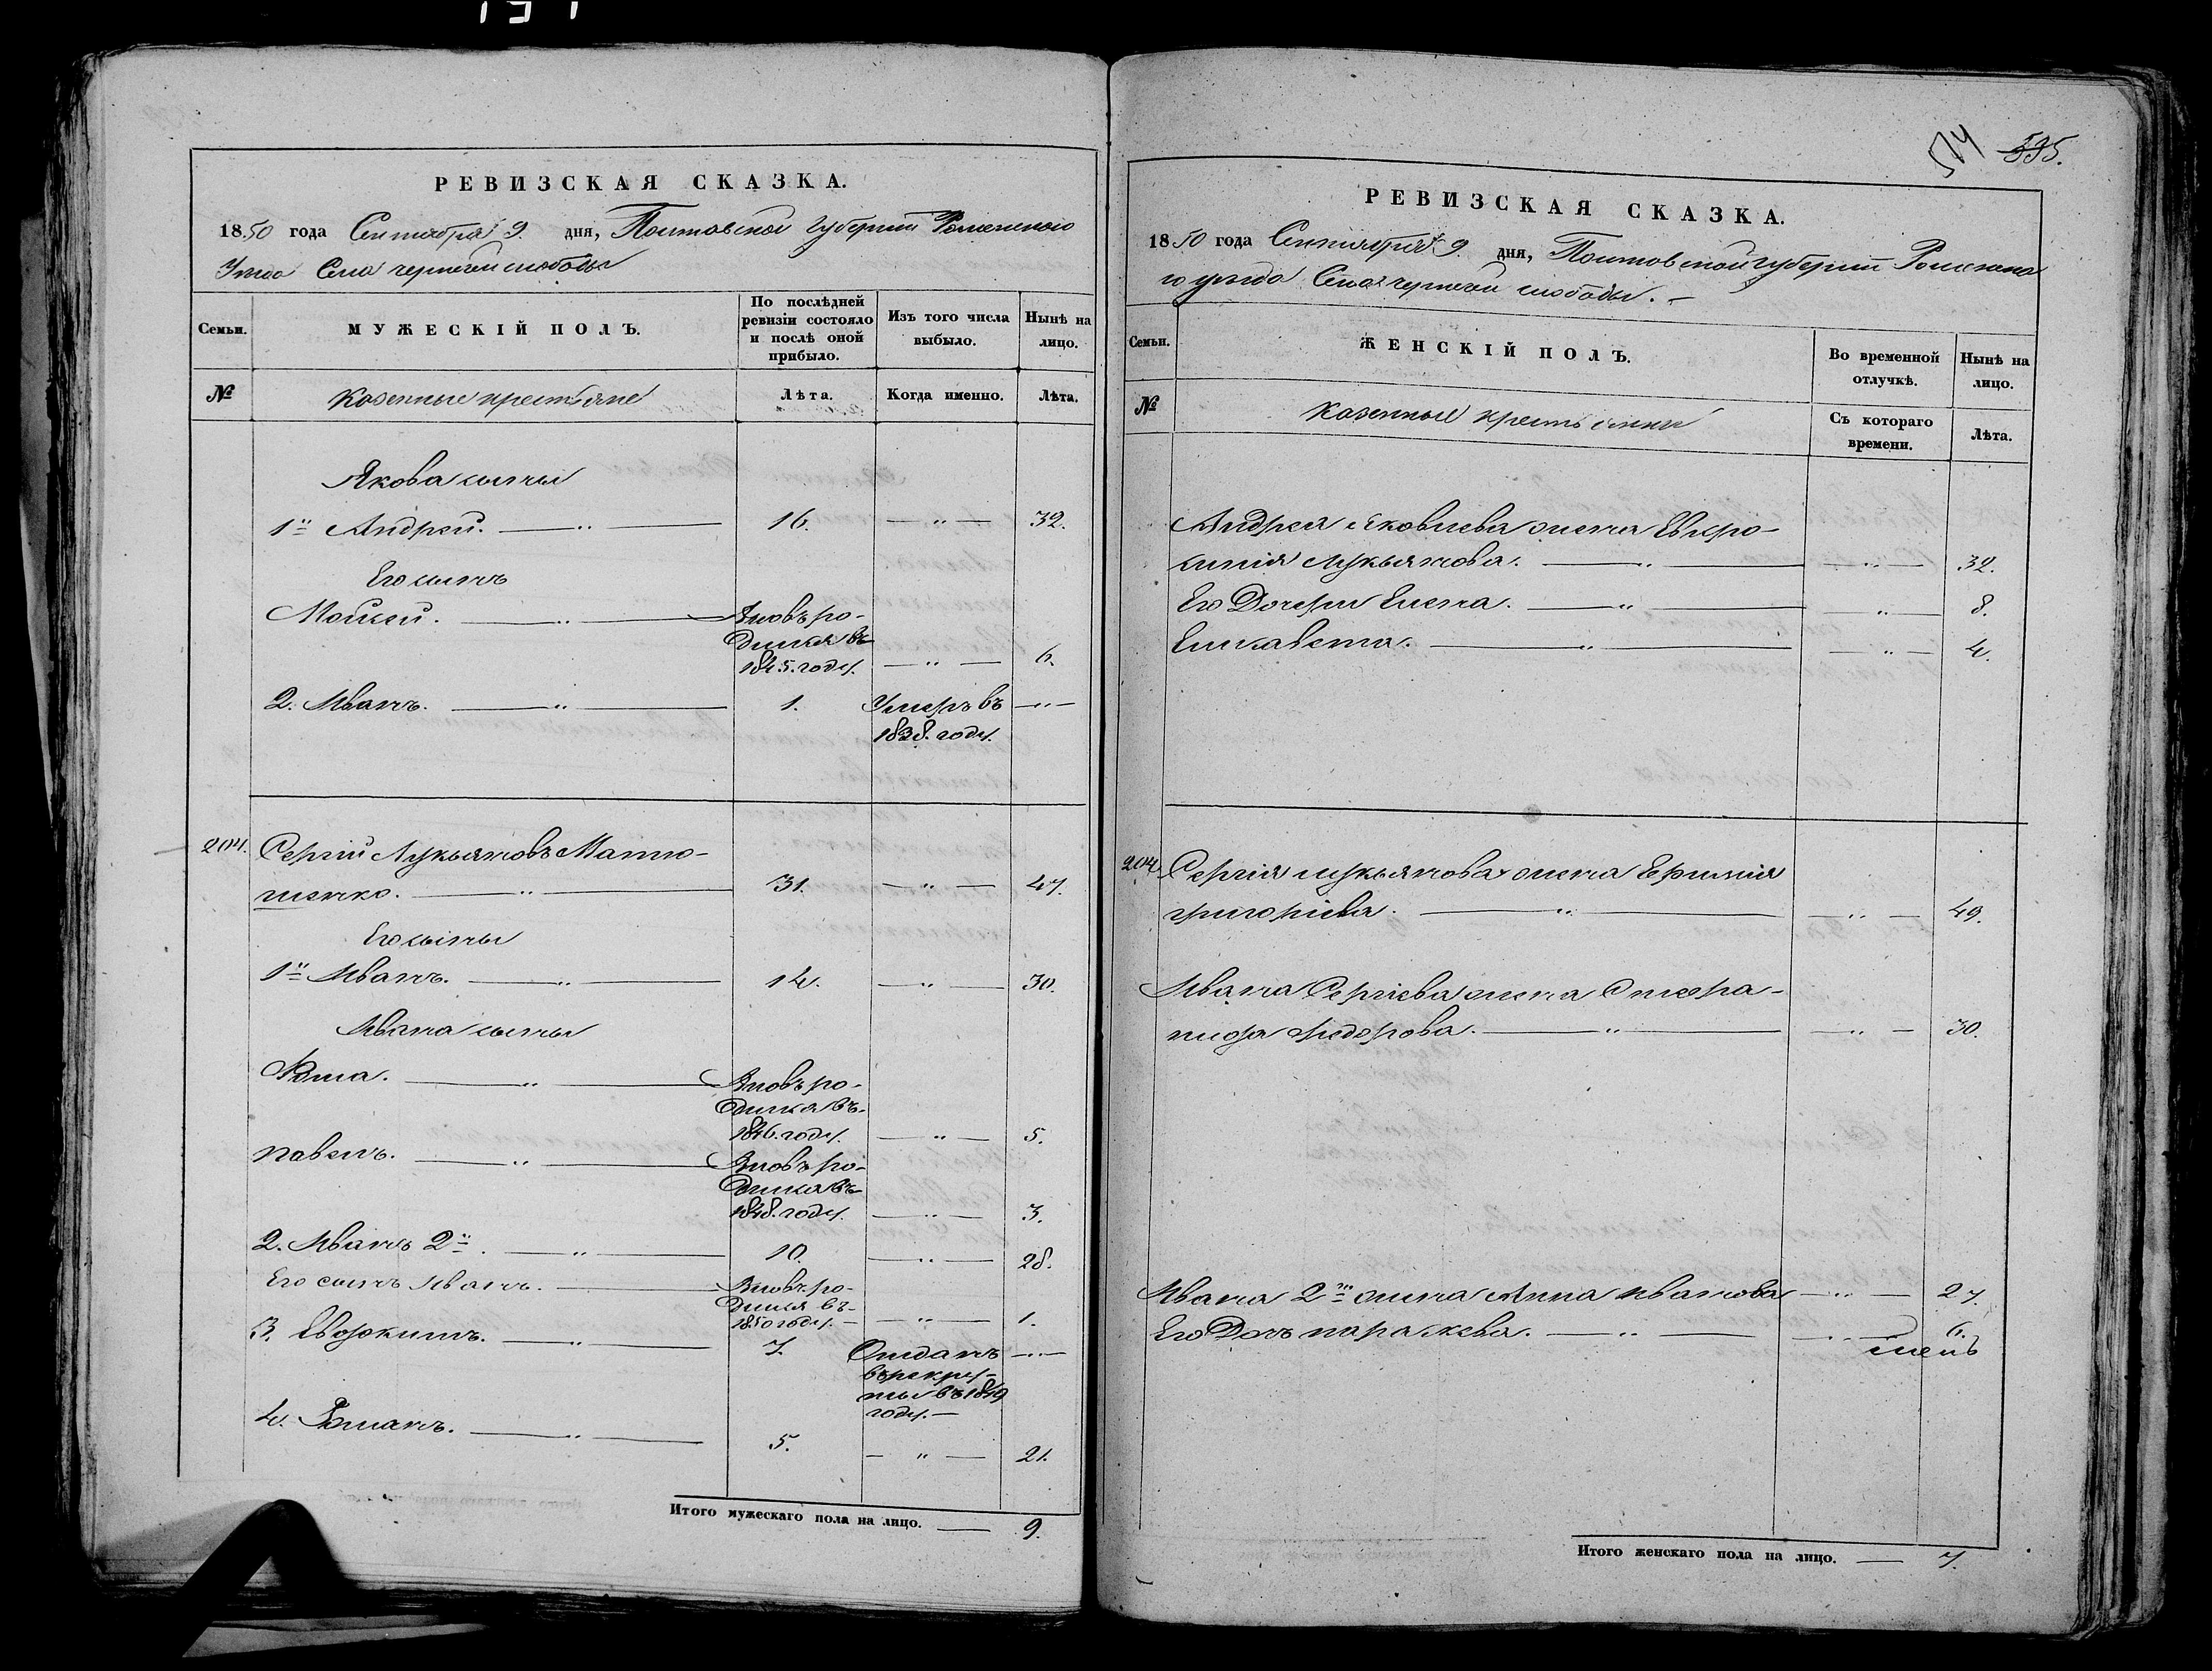 РЕВИЗСКАЯ СКАЗКА.
1850 года Сентября 9. дня, Полтавской Губернии Роменского
Уезда Села чернечей слободы
Семьи.
МУЖЕСКІЙ ПОЛЪ.
По послѣдней ревизіи состояло и послѣ оной прибыло.
Изъ того числа выбыло.
Нынѣ на лицо.
№
Казенные крестьяне
Лѣта.
Когда именно.
Лѣта.
Якова сыны
1й Андрей. — " — 16. — " — 32.
Его сынъ
Мойсей. — " — Вновь ро-
дился въ
1845. году. — " — 6.
2. Иванъ. — " — 1. Умеръ въ — " —
1838. году.
204. Сергій Лукьяновъ Матю-
шенко. — " — 31. — " — 47.
Его сыны
1й Иванъ. — " — 14. — " — 30.
Ивана сыны
Фома. — " — Вновь ро-
дился въ
1846. году. — " — 5.
Павелъ. — " — Вновь ро-
дился въ
1848. году. — " — 3.
2. Иванъ 2й. — " — 10. — " — 28.
Его сынъ Иванъ. — Вновь ро-
дился въ
1850 году. — " — 1.
3. Евфокимъ. — " — 7. Отданъ — " —
въ рекру-
ты въ 1849
году. —
4. Романъ. — " — 5. — " — 21.
Итого мужескаго пола на лицо. — 9.
574 595.
РЕВИЗСКАЯ СКАЗКА.
1850 года Сентября 9. дня, Полтавской губернии Роменска
го уезда Села чернечей слободы. —
Семьи.
ЖЕНСКІЙ ПОЛЪ.
Во временной отлучкѣ.
Нынѣ на лицо.
№
Казенные крестьянки
Съ котораго времени.
Лѣта.
Андрея Яковлева жена Евфро-
синія Лукьянова. — " — — " — 32.
Его Дочери Елена. — " — — " — 8.
Елисавета. — " — — " — 4.
204. Сергія Лукьянова жена Ефимія
григоріева. — " — — " — 49.
Ивана Сергіева жена Стефа-
нида Федорова. — " — — " — 30.
Ивана 2го жена Анна Иванова — " — 27.
Его Дочь параскева. — " — — " — 6.
Итого женскаго пола на лицо. — 7.